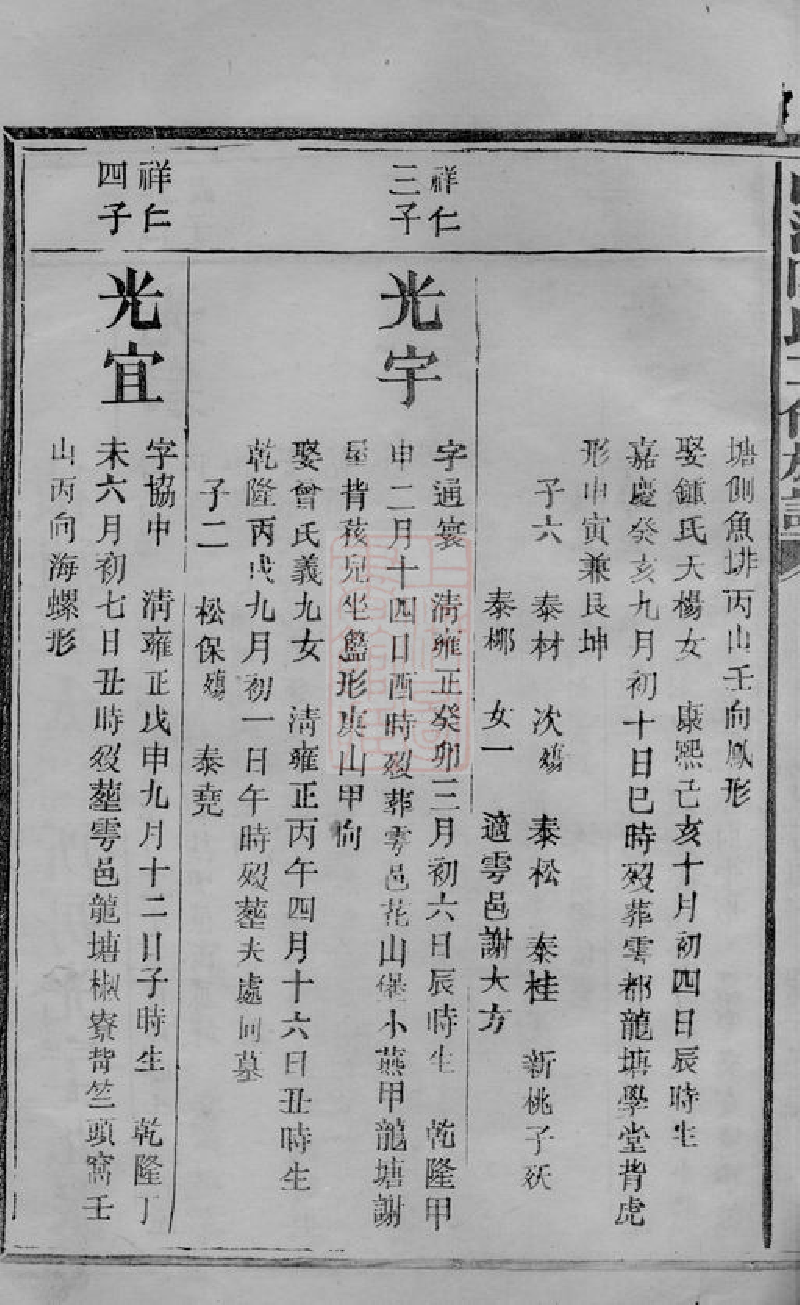 塘側魚埘丙山壬向鳳形
娶鍾氏大楊女　康熙己亥十月初四日辰時生
嘉慶癸亥九月初十日巳時歿葬雩都龍塘學堂背虎
形申寅兼艮坤
子六　泰材　次殤　泰松　泰桂　新桃子殀
泰梛　女一　適雩邑謝大方
祥仁
三子
光宇
字通寰　清雍正癸卯三月初六日辰時生　乾隆甲
申二月十四日酉時歿葬雩邑花山堡小燕甲龍塘謝
屋背孩兒坐盤形庚山甲向
娶曾氏義九女　清雍正丙午四月十六日丑時生
乾隆丙戌九月初一日午時歿塟夫處同墓
子二　松保殤　泰堯
祥仁
四子
光宜
字協中　清雍正戊申九月十二日子時生　乾隆丁
未六月初七日丑時歿塟雩邑龍塘椒寮背竺頭窩壬
山丙向海螺形